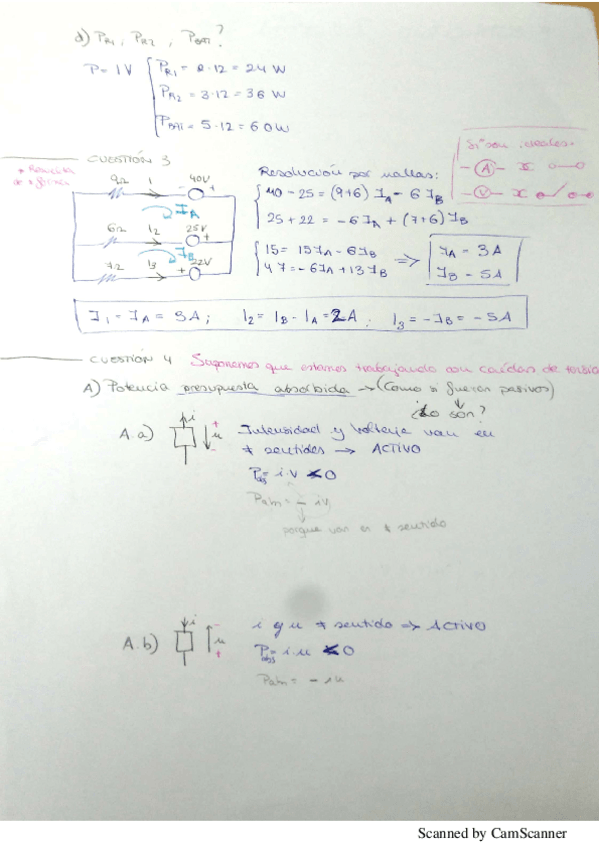 d) PR1, PR2, PBAT?
P = IV
PR1 = 2·12 = 24 W
PR2 = 3·12 = 36 W
PBAT = 5·12 = 60 W
CUESTIÓN 3
* Resuelta de
Si son ideales.
A
V
9Ω I1 - 40V +
IA
6Ω I2 25V +
IB
7Ω I3 + 22V
Resolución por mallas:
40 - 25 = (9+6) IA - 6 IB
25 + 22 = -6 IA + (7+6) IB
15 = 15 IA - 6 IB
47 = -6 IA + 13 IB
⇒
IA = 3A
IB = 5A
I1 = IA = 3A; I2 = IB - IA = 2A; I3 = -IB = -5A
CUESTIÓN 4 Suponemos que estamos trabajando con caídas de tensió
A) Potencia presupuesta absorbida → (Como si fueran pasivos)
¿Lo son?
A.a) i + u - Intensidad y voltaje van en
≠ sentidos → ACTIVO
Pabs = i·v < 0
Pabs = - iv
porque van en ≠ sentido
A.b) i - u + i y u ≠ sentido ⇒ ACTIVO
Pabs = i·u < 0
Pabs = - iu
Scanned by CamScanner